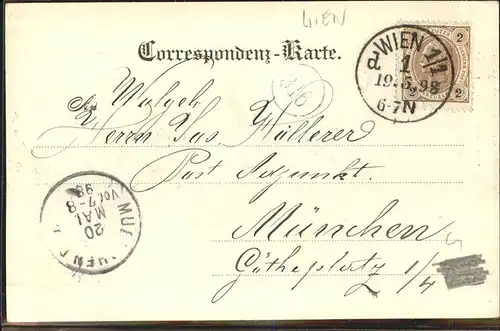 WIEN
Correspondenz-Karte.
WIEN 1/1
d 1
19.5.98
6-7N
2 2
316
An
Herrn Jos. Höllerer
Post Adjunkt.
München
Götheplatz 1/4
MÜNCHEN
20
MAI
Vor. 7-8
98